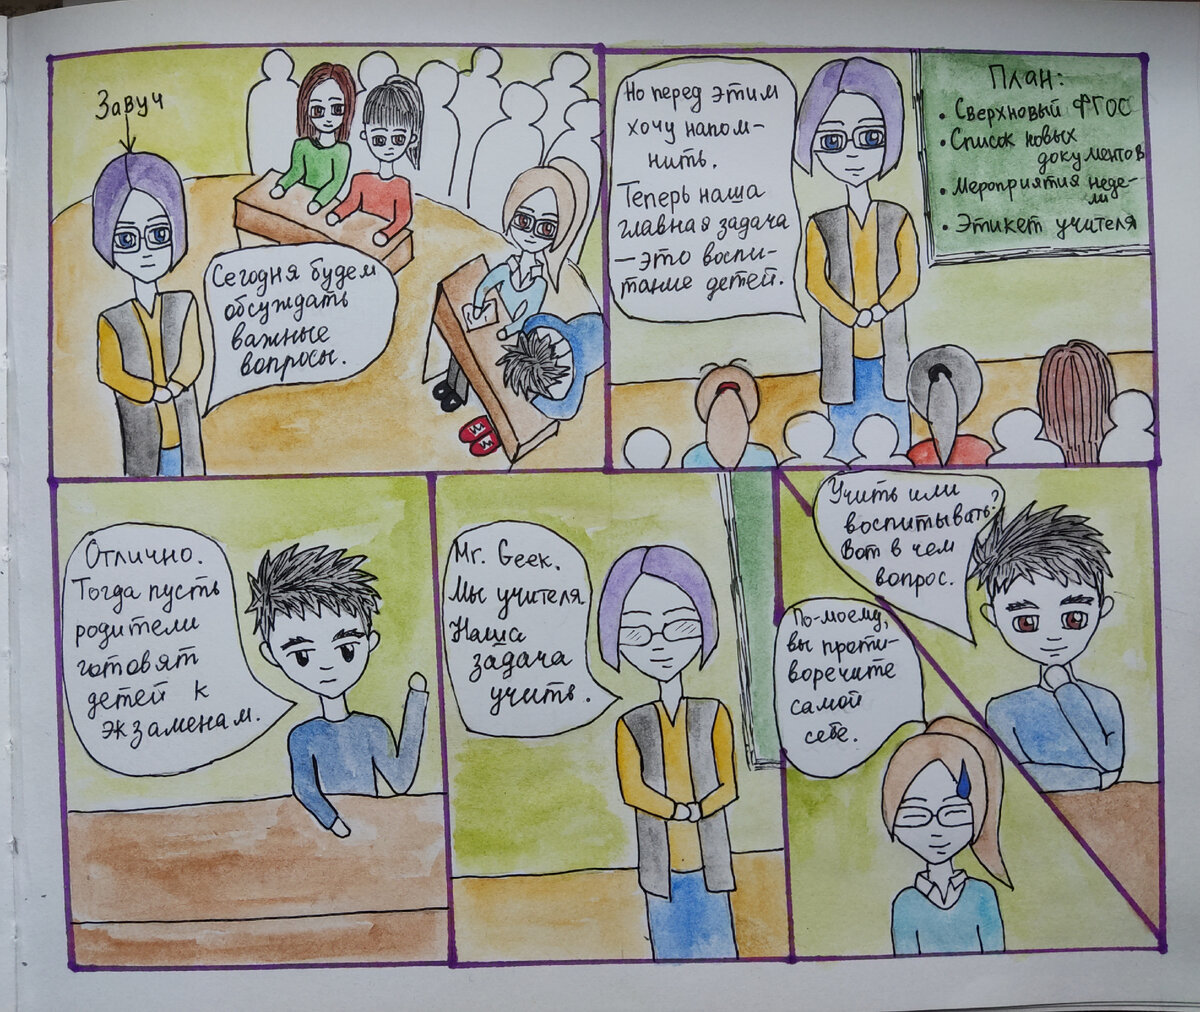 Завуч
Сегодня будем
обсуждать
важные
вопросы.
Но перед этим
хочу напом-
нить.
Теперь наша
главная задача
—это воспи-
тание детей.
План:
• Сверхновый ФГОС
• Список новых
документов
• Мероприятия неде-
ли
• Этикет учителя
Отлично.
Тогда пусть
родители
готовят
детей к
экзаменам.
Mr. Geek.
Мы учителя.
Наша
задача
учить.
Учить или
воспитывать?
Вот в чем
вопрос.
По-моему,
вы проти-
воречите
самой
себе.